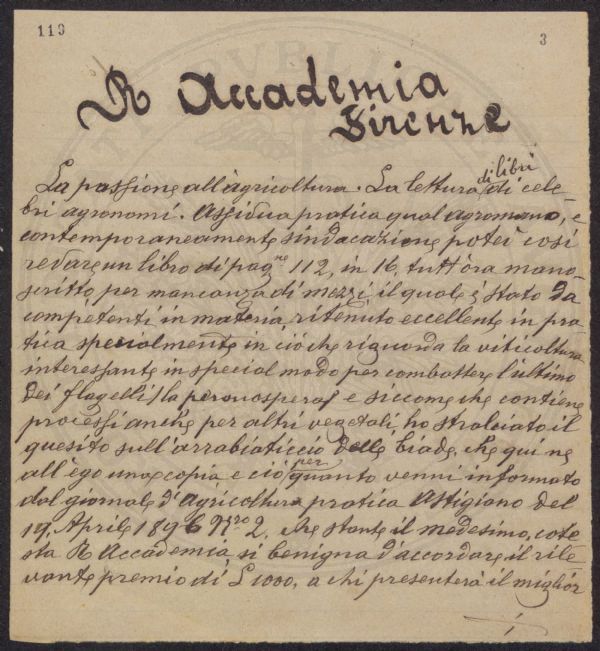 113
3
R Accademia
Firenze
di libri
La passione all'agricoltura. La lettura di cele-
bri agronomi. Assidua pratica qual agromano, e
contemporaneamente sindacazione potei così
redare un libro di pagne 112, in 16, tutt'ora mano-
scritto per mancanza di mezzi, il quale è stato da
competenti in materia, ritenuto eccellente in pra-
tica specialmente in ciò che riguarda la viticoltura
interessante in special modo per combattere l'ultimo
dei flagelli (la peronospera) e siccome che contiene
processi anche per altri vegetali, ho stralciato il
quesito sull'arrabiaticcio delle biade, che qui ne
all'ego una copia, e ciò per quanto venni informato
dal giornale d'Agricoltura pratica Astigiano del
19, Aprile 1896 Nro 2, che stante il medesimo, cote-
sta R Accademia, si benigna d'accordare il rile-
vante premio di £ 1000, a chi presenterà il miglior